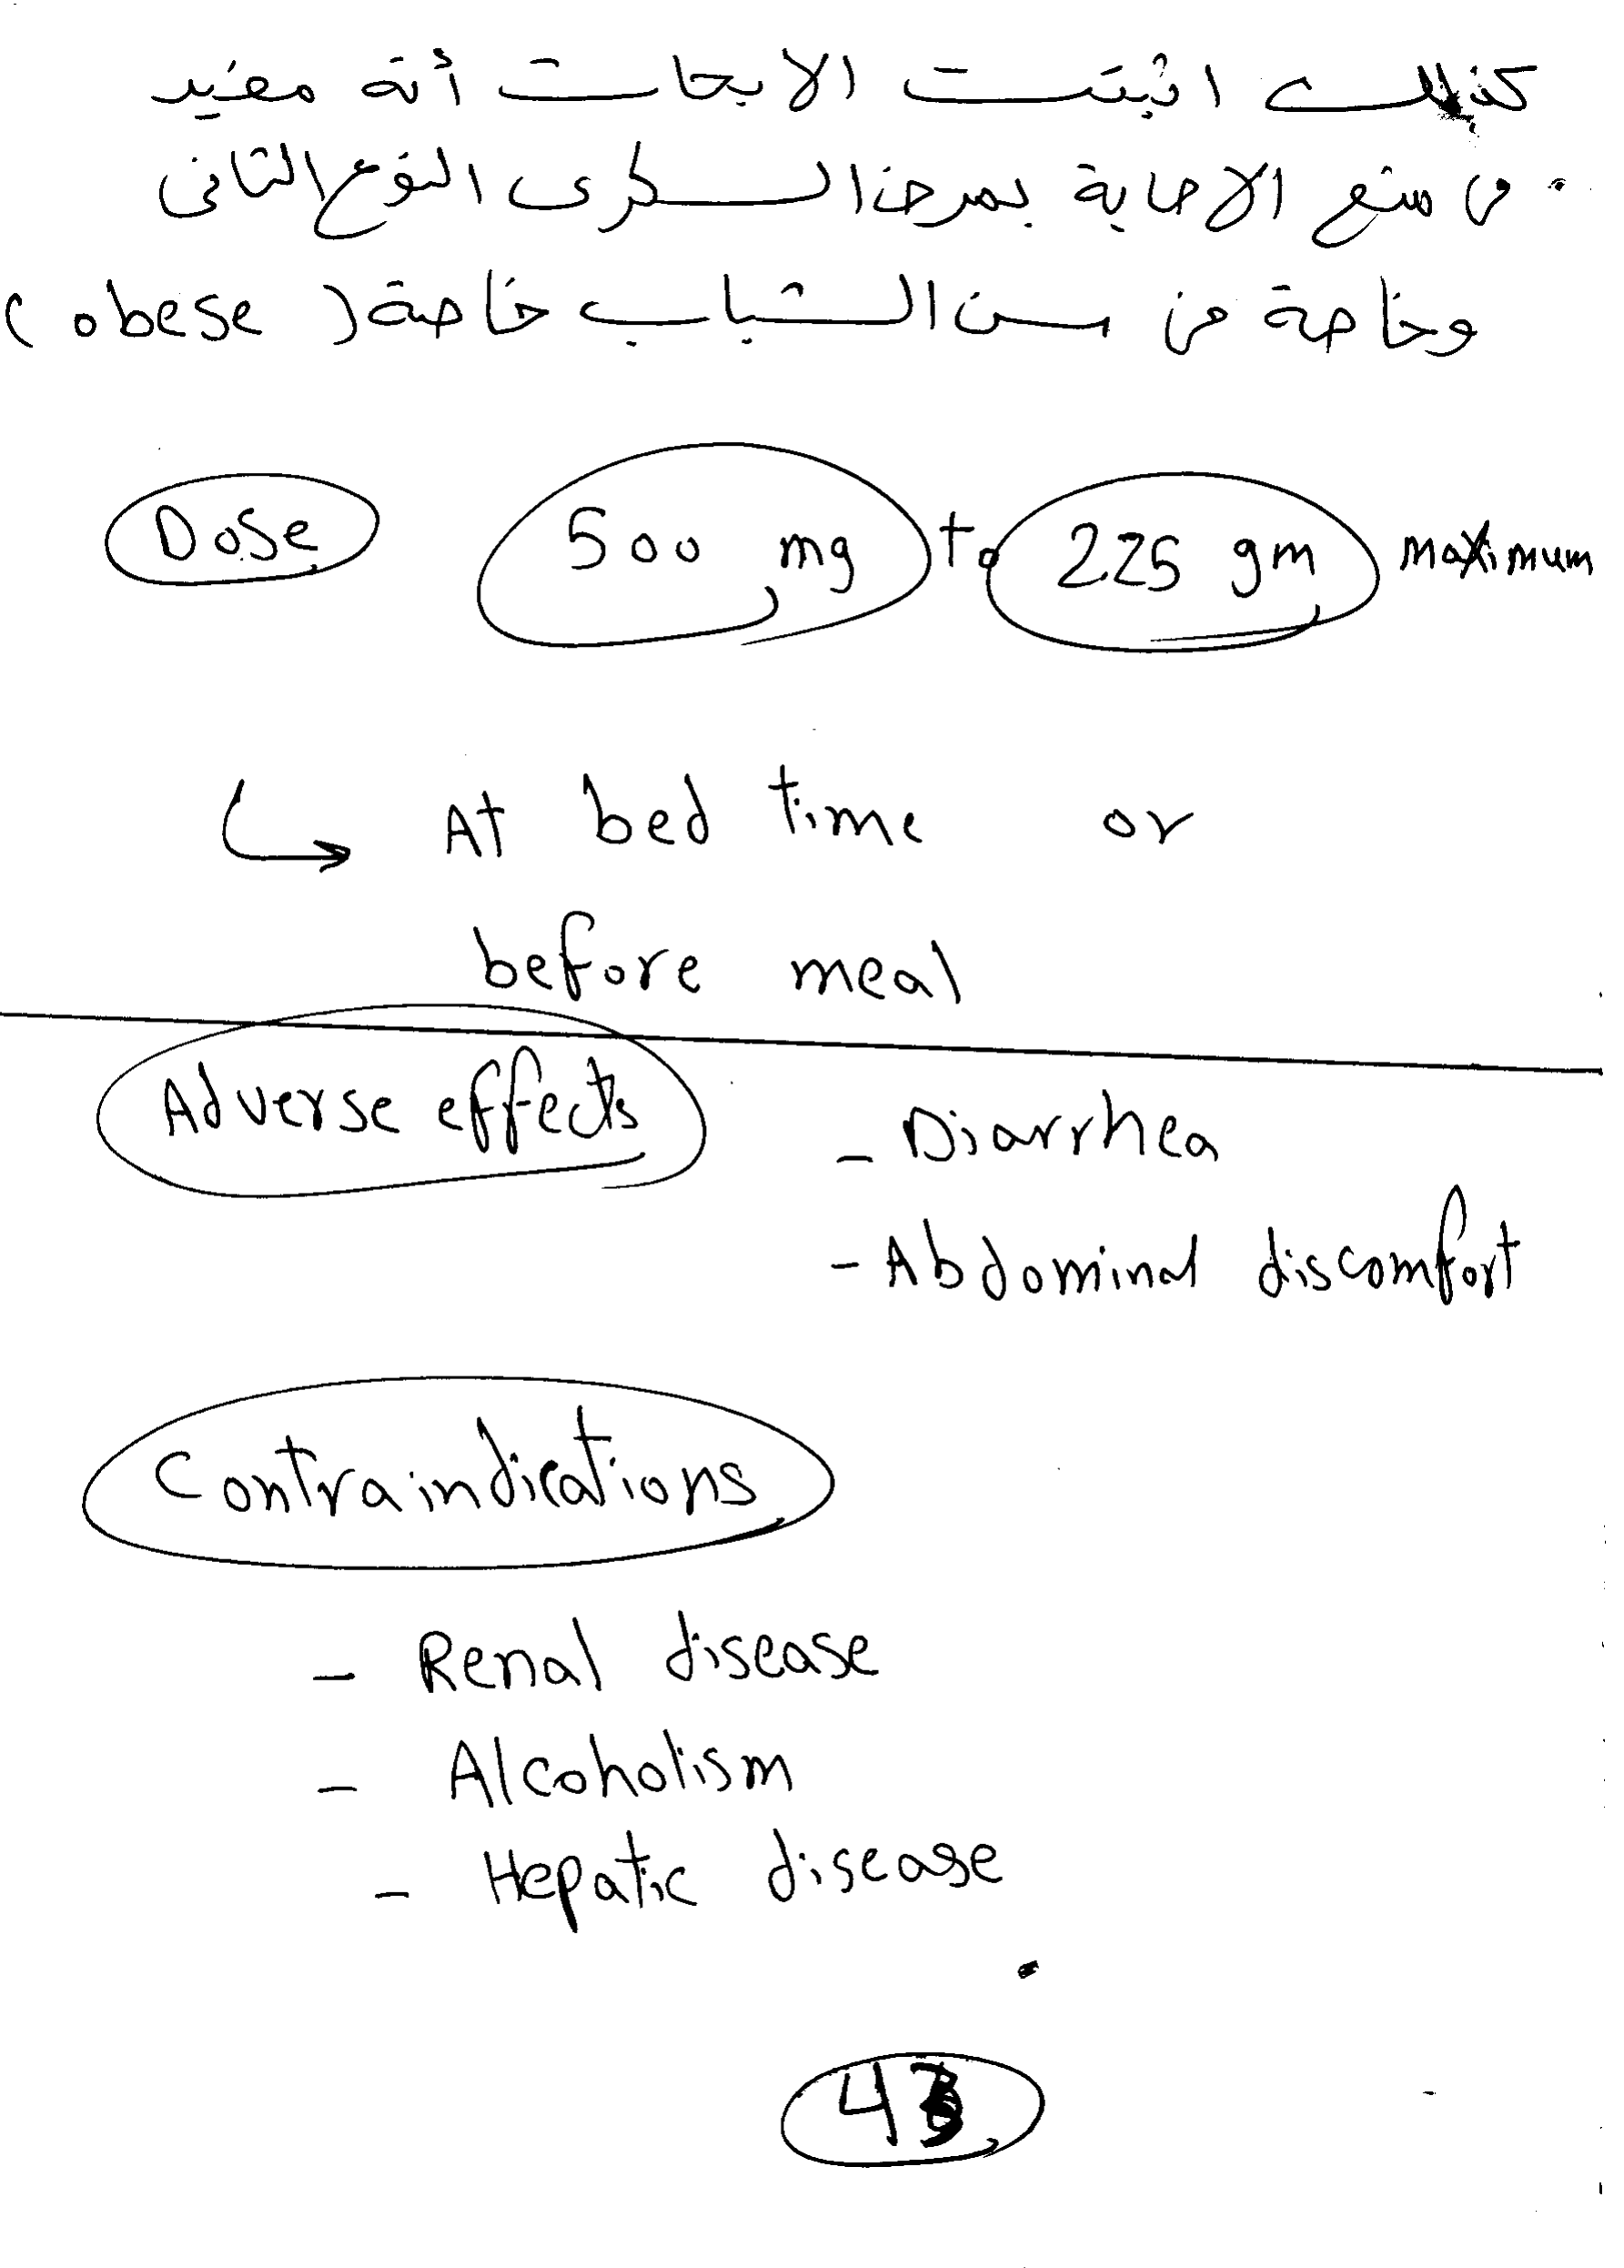 كذلك اثبتت الابحاث أنه مفيد
فى منع الاصابة بمرض السكرى النوع الثانى
وخاصة فى سن الشباب خاصة (obese)
Dose 500 mg to 2.25 gm maximum
↳ At bed time or
before meal
Adverse effects - Diarrhea
- Abdominal discomfort
Contraindications
- Renal disease
- Alcoholism
- Hepatic disease
43